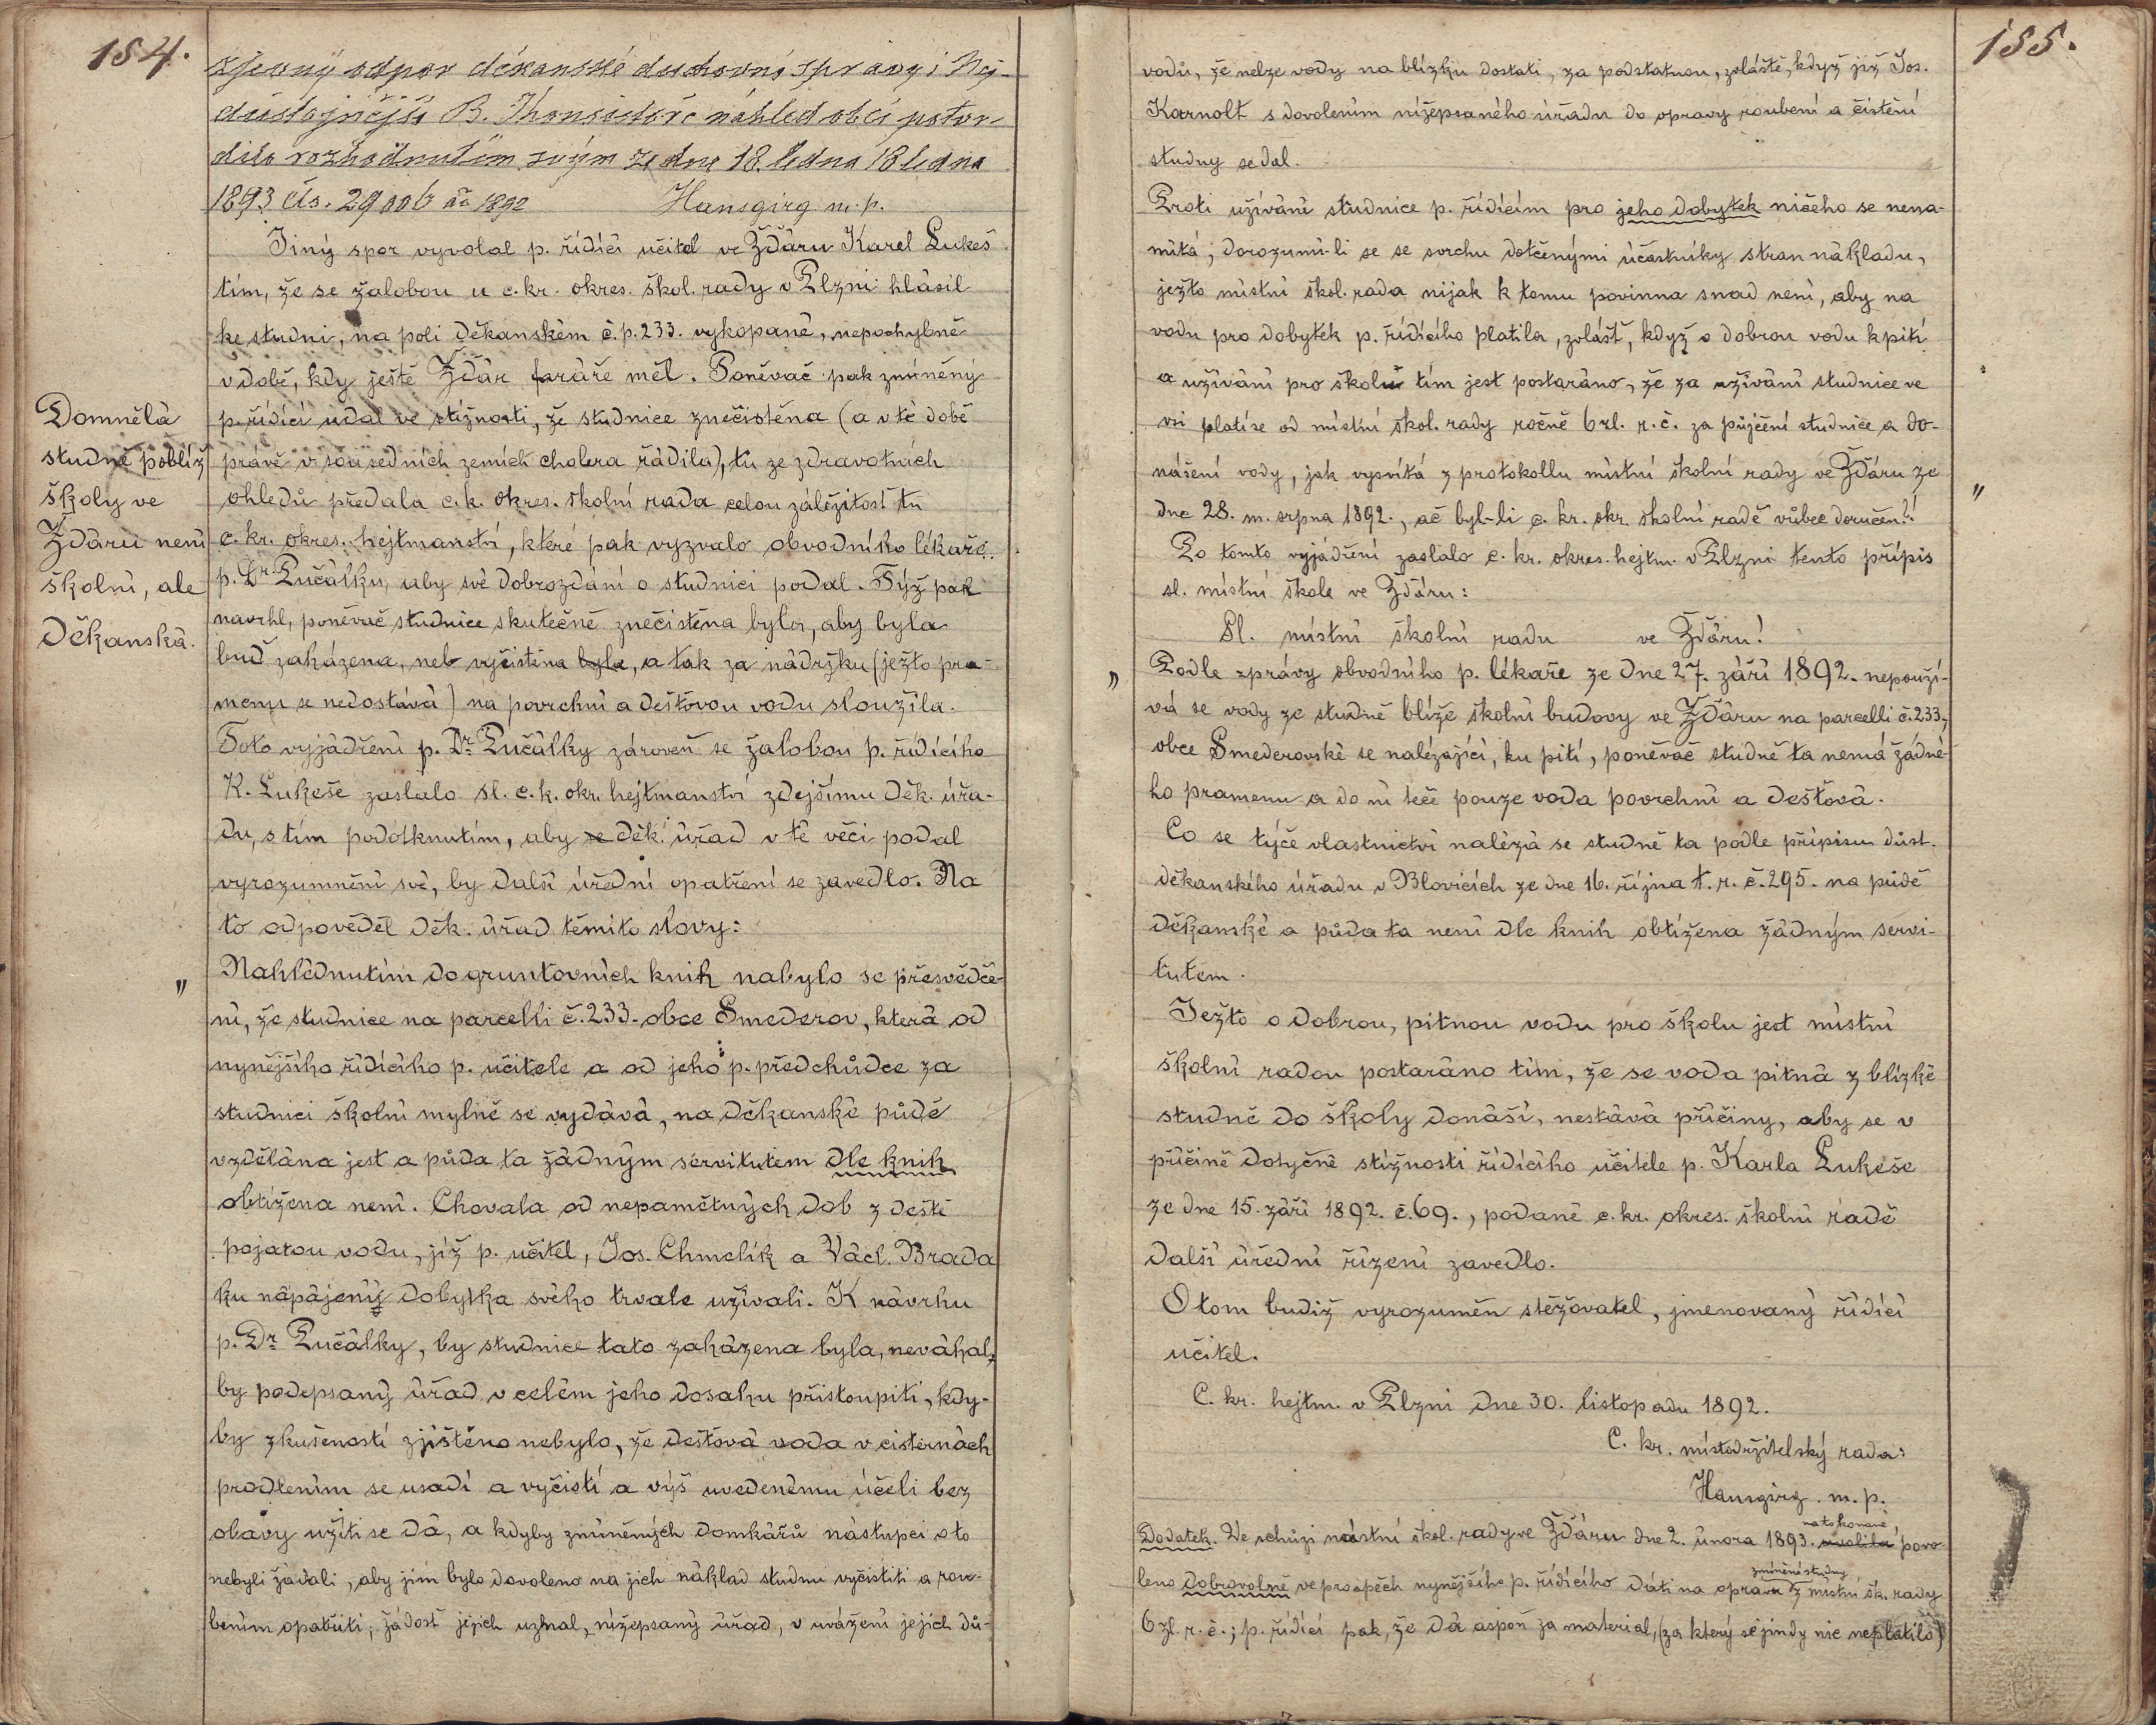 184.
zjevný odpor děkanské duchovní správy i Nej-
důstojnější B. Konsistoře náhled obcí potvr-
dila rozhodnutím svým ze dne 18. ledna 18 ledna
1893 čís. 29006 ai 1892 Hansgirg m. p.
Jiný spor vyvolal p. řídící učitel ve Žďáru Karel Lukeš
tím, že se žalobou u c. kr. okres. škol. rady v Plzni hlásil
ke studni, na poli děkanském č. p. 233. vykopané, nepochybně
v době, kdy ještě Žďár faráře měl. Poněvač pak zmíněný
p. řídící udal ve stížnosti, že studnice znečistěna (a v té době
právě v sousedních zemích cholera řádila), tu ze zdravotních
ohledů předala c. k. okres. školní rada celou záležitost tu
c. kr. okres. hejtmanství, které pak vyzvalo obvodního lékaře
p. Dr. Pučálku, aby své dobrozdání o studnici podal. Týž pak
navrhl, poněvač studnice skutečně znečistěna byla, aby byla
buď zakázena, neb vyčistěna byla, a tak za nádržku (ježto pra-
menu se nedostává) na povrchní a dešťovou vodu sloužila.
Toto vyjádření p. Dr. Pučálky zároveň se žalobou p. řídícího
K. Lukeše zaslalo sl. c. k. okr. hejtmanství zdejšímu děk. úřa-
du, s tím podotknutím, aby se děk. úřad v té věci podal
vyrozumnění své, by další úřední opatření se zavedlo. Na
to odpověděl děk. úřad těmito slovy:
" Nahlédnutím do gruntovních knih nabylo se přesvědče-
ní, že studnice na parcelli č. 233. obce Smederov, která od
nynějšího řídícího p. učitele a od jeho p. předchůdce za
studnici školní mylně se vydává, na děkanské půdě
vzdělána jest a půda ta žádným servitutem dle knih
obtížena není. Chovala od nepamětných dob z deště
pojatou vodu, již p. učitel, Jos. Chmelík a Václ. Brada
ku nápájený dobytka svého trvale užívali. K návrhu
p. Dr. Pučálky, by studnice tato zakázena byla, neváhal
by podepsaný úřad v celém jeho dosahu přistoupiti, kdy-
by zkušeností zjištěno nebylo, že dešťová voda v cisternách
prodlením se usadí a vyčistí a výš uvedenému účeli bez
obavy užíti se dá, a kdyby zmíněných domkářů nástupci o to
nebyli žádali, aby jim bylo dovoleno na jich náklad studnu vyčistiti a rou-
bením opatřiti; žádost jejich uznal nížepsaný úřad, v uvážení jejich dů-
Domnělá
studně poblíž
školy ve
Žďáru není
školní, ale
děkanská.
185.
vodů, že nelze vody na blízku dostati, za podstatnou, zvláště, když již Jos.
Karnolt s dovolením nížepsaného úřadu do opravy roubení a čistění
studny se dal.
Proti užívání studnice p. řídícím pro jeho dobytek ničeho se nena-
mítá, dorozumí-li se se svrchu dotčenými účastníky stran nákladu,
ježto místní škol. rada nijak k tomu povinna snad není, aby na
vodu pro dobytek p. řídícího platila, zvlášť, když o dobrou vodu k pití
a užívání pro školu tím jest postaráno, že za užívání studnice ve
vsi platí se od místní škol. rady ročně 6 zl. r. č. za půjčení studnice a do-
nášení vody, jak vysvítá z protokollu místní školní rady ve Žďáru ze
dne 28. m. srpna 1892., ač byl-li c. kr. okr. školní radě vůbec doručen!! "
Po tomto vyjádření zaslalo c. kr. okres. hejtm. v Plzni tento přípis
sl. místní škole ve Žďáru:
Sl. místní školní radu ve Žďáru!
" Podle zprávy obvodního p. lékaře ze dne 27. září 1892. nepouží-
vá se vody ze studně blíže školní budovy ve Žďáru na parcelli č. 233,
obce Smederovské se nalézající, ku pití, poněvač studně ta nemá žádné-
ho pramenu a do ní teče pouze voda povrchní a dešťová.
Co se týče vlastnictví nalézá se studně ta podle přípisu důst.
děkanského úřadu v Blovicích ze dne 16. října t. r. č. 295. na půdě
děkanské a půda ta není dle knih obtížena žádným servi-
tutem.
Ježto o dobrou, pitnou vodu pro školu jest místní
školní radou postaráno tím, že se voda pitná z blízké
studně do školy donáší, nestává příčiny, aby se v
příčině dotyčné stížnosti řídícího učitele p. Karla Lukeše
ze dne 15. září 1892. č. 69., podané c. kr. okres. školní radě
další úřední řízení zavedlo.
O tom budiž vyrozuměn stěžovatel, jmenovaný řídící
učitel.
C. kr. hejtm. v Plzni dne 30. listopadu 1892.
C. kr. místodržitelský rada:
Hansgirg. m. p.
Dodatek. Ve schůzi místní škol. rady ve Žďáru dne 2. února 1893. na to konané, povo-
leno dobrovolně ve prospěch nynějšího p. řídícího dáti na opravu zmíněné studny z místní šk. rady
6 zl. r. č.; p. řídící pak, že dá aspoň za material, (za který se jindy nic neplatilo)